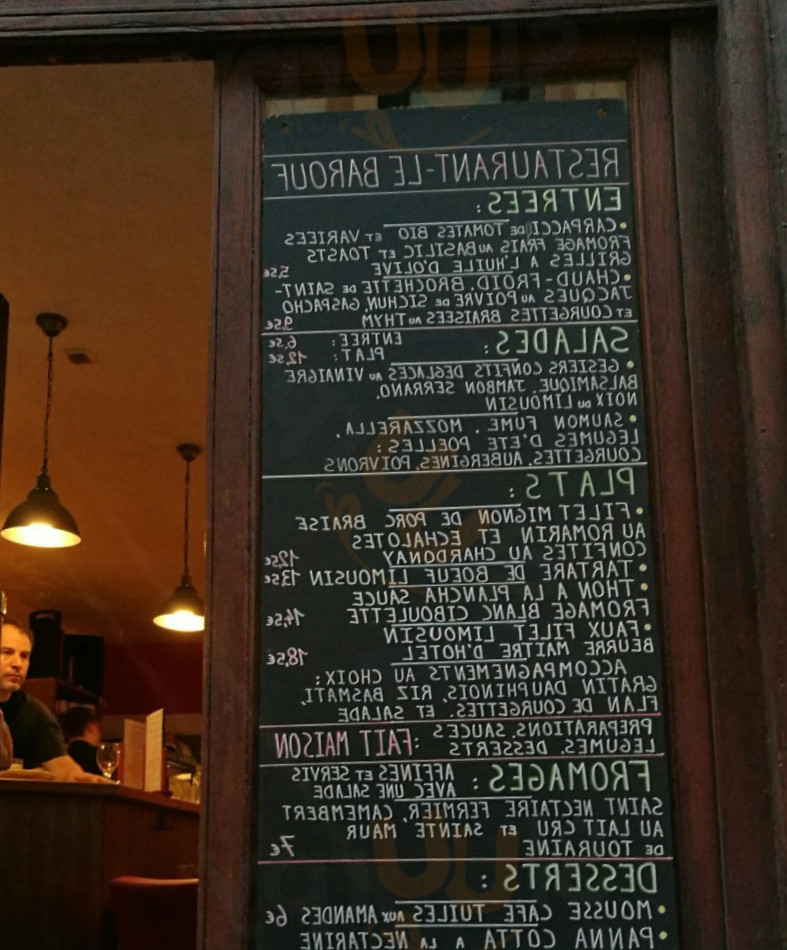 RESTAURANT-LE BAROUF
ENTREES:
• CARPACCI DE TOMATES BIO ET VARIEES
FROMAGE FRAIS AU BASILIC ET TOASTS
GRILLES A L'HUILE D'OLIVE 5,5€
• CHAUD-FROID, BROCHETTE DE SAINT-
JACQUES AU POIVRE DE SICHUN, GASPACHO
ET COURGETTES BRAISEES AU THYM 9,5€
SALADES: ENTREE: 6,5€
PLAT: 12,5€
• GESIERS CONFITS DEGLACES AU VINAIGRE
BALSAMIQUE, JAMBON SERRANO,
NOIX DU LIMOUSIN
• SAUMON FUME, MOZZARELLA,
LEGUMES D'ETE POELLES:
COURGETTES, AUBERGINES, POIVRONS
PLATS:
• FILET MIGNON DE PORC BRAISE
AU ROMARIN ET ECHALOTES
CONFITES AU CHARDONAY 12,5€
• TARTARE DE BOEUF LIMOUSIN 13,5€
• THON A LA PLANCHA SAUCE
FROMAGE BLANC CIBOULETTE 14,5€
• FAUX FILET LIMOUSIN
BEURRE MAITRE D'HOTEL 18,5€
ACCOMPAGNEMENTS AU CHOIX:
GRATIN DAUPHINOIS, RIZ BASMATI,
FLAN DE COURGETTES, ET SALADE
PREPARATIONS, SAUCES
LEGUMES, DESSERTS : FAIT MAISON
FROMAGES: AFFINES ET SERVIS
AVEC UNE SALADE
SAINT NECTAIRE FERMIER, CAMEMBERT
AU LAIT CRU ET SAINTE MAUR
DE TOURAINE 7€
DESSERTS:
• MOUSSE CAFE TUILES AUX AMANDES 6€
• PANNA COTTA A LA NECTARINE